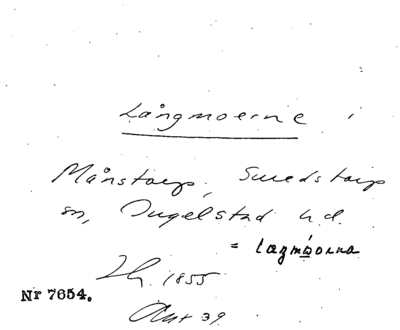 Långmoerne i
Månstorp, Smedstorp
sn, Ingelstad hd.
= lagmöorna
1855
Nr 7654.
39